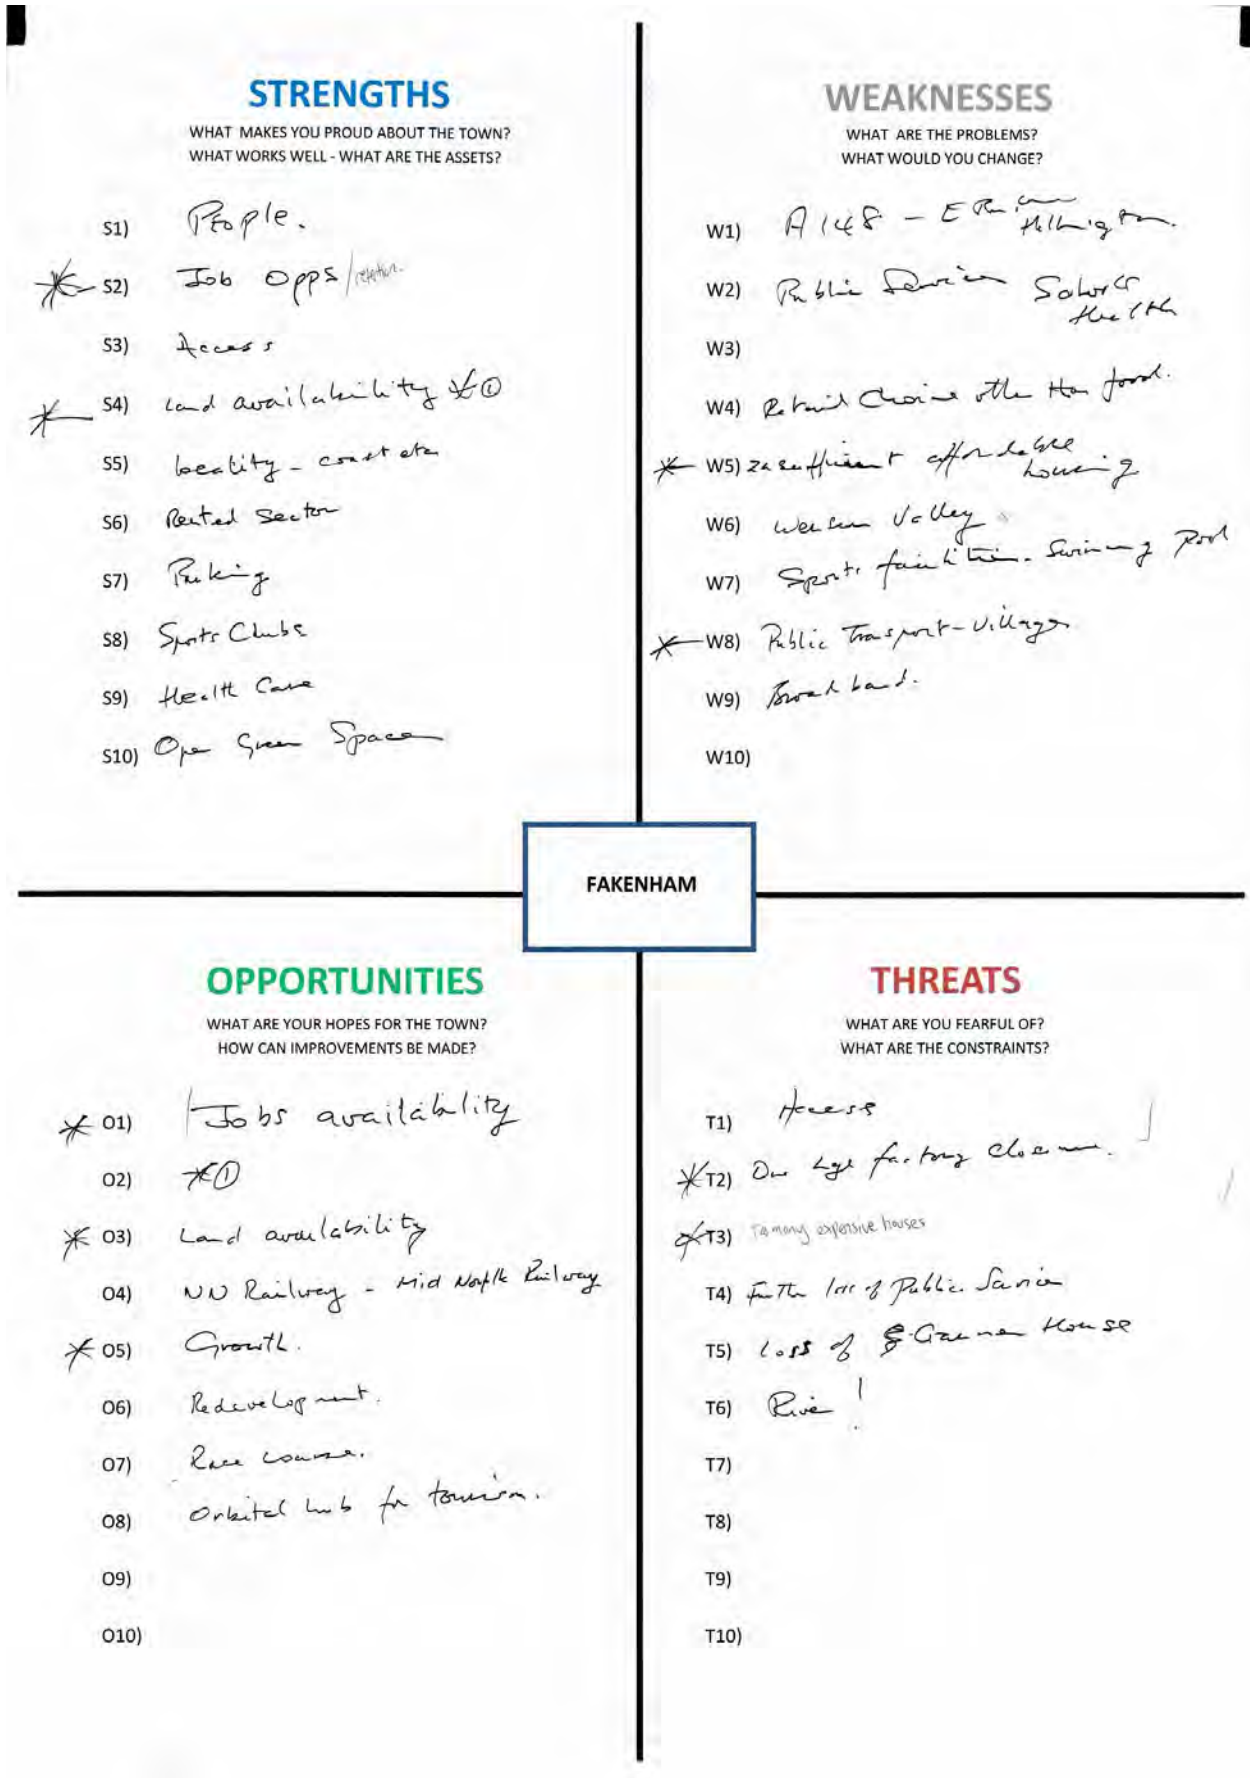 STRENGTHS
WHAT MAKES YOU PROUD ABOUT THE TOWN?
WHAT WORKS WELL - WHAT ARE THE ASSETS?
S1) People.
S2) Job Opps/retention.
S3) Access
S4) Land availability *①
S5) locality - coast etc
S6) Rented Sector
S7) Parking
S8) Sports Clubs
S9) Health Care
S10) Open Green Spaces
WEAKNESSES
WHAT ARE THE PROBLEMS?
WHAT WOULD YOU CHANGE?
W1) A148 - Hillington.
W2) Public Services Schools
Health
W3)
W4) Retail Choice other than food.
W5) Insufficient affordable
housing
W6) Wensum Valley
W7) Sports facilities - Swimming Pool
W8) Public Transport - Villages
W9) Broadband.
W10)
FAKENHAM
OPPORTUNITIES
WHAT ARE YOUR HOPES FOR THE TOWN?
HOW CAN IMPROVEMENTS BE MADE?
O1) Jobs availability
O2) *①
O3) Land availability
O4) NN Railway - Mid Norfolk Railway
O5) Growth.
O6) Redevelopment.
O7) Race course.
O8) Orbital hub for tourism.
O9)
O10)
THREATS
WHAT ARE YOU FEARFUL OF?
WHAT ARE THE CONSTRAINTS?
T1) Access
T2) One lge factory closure.
T3) To many expensive houses
T4) Further loss of Public Service
T5) Loss of Cranmer House
T6) River!
T7)
T8)
T9)
T10)